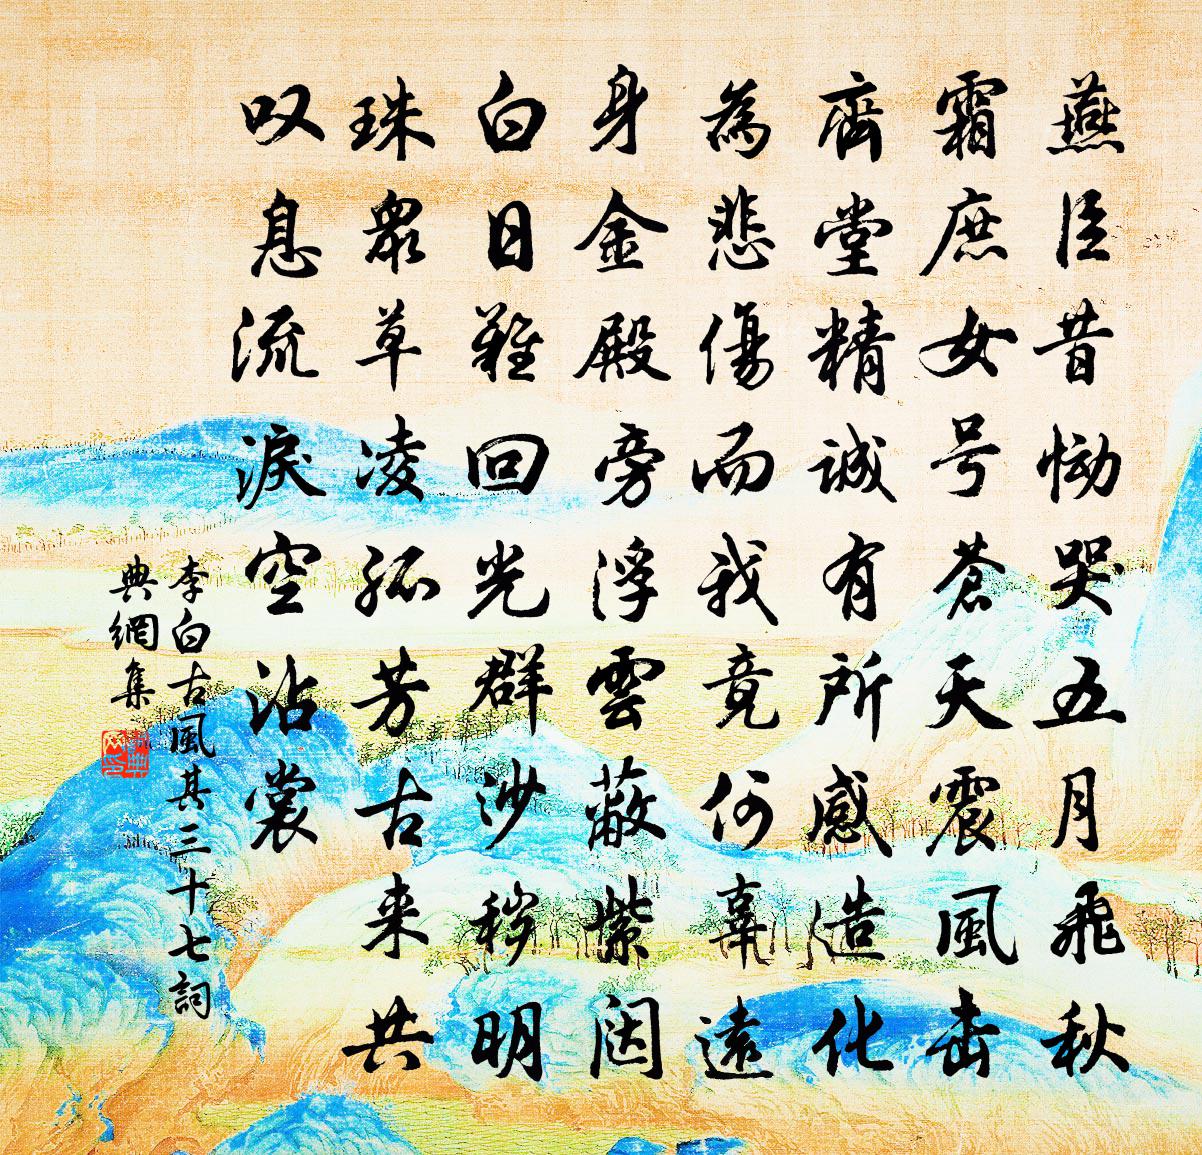 燕臣昔慟哭五月飛秋
霜庶女号蒼天震風击
齊堂精誠有所感造化
為悲傷而我竟何辜遠
身金殿旁浮雲蔽紫闼
白日難回光群沙秽明
珠衆草凌孤芳古来共
叹息流淚空沾裳
李白古風其三十七詞
典網集